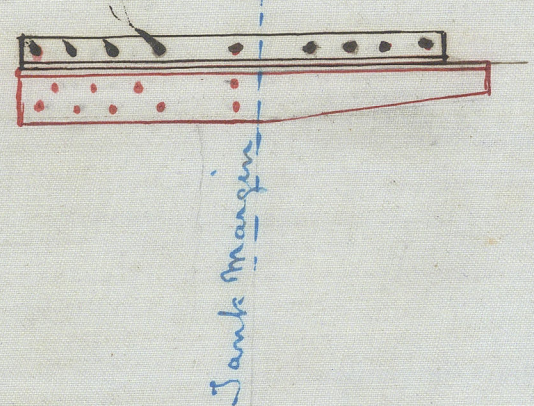 Tank Margin